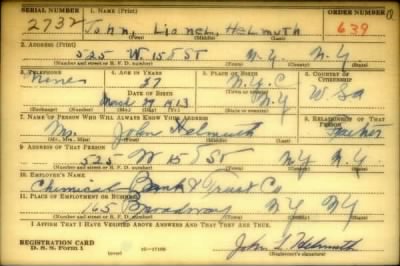 SERIAL NUMBER 1. NAME (Print) ORDER NUMBER
2732 John Lionel Helmuth 639
(First) (Middle) (Last)
2. ADDRESS (Print)
525 W 158 ST N.Y. N.Y
(Number and street or R. F. D. number) (Town) (County) (State)
3. TELEPHONE 4. AGE IN YEARS 5. PLACE OF BIRTH 6. COUNTRY OF CITIZENSHIP
None N.Y.C
DATE OF BIRTH
March 1913 N.Y
(Exchange) (Number) (Mo.) (Day) (Yr.) (State or country)
7. NAME OF PERSON WHO WILL ALWAYS KNOW YOUR ADDRESS 8. RELATIONSHIP OF THAT PERSON
John Helmuth Father
(Mr., Mrs., Miss) (First) (Middle) (Last)
9. ADDRESS OF THAT PERSON
525 W 158 ST NY N.Y.
(Number and street or R. F. D. number) (Town) (County) (State)
10. EMPLOYER'S NAME
Chemical Bank & Trust Co
11. PLACE OF EMPLOYMENT OR BUSINESS
165 Broadway NY NY
(Number and street or R. F. D. number) (Town) (County) (State)
I AFFIRM THAT I HAVE VERIFIED ABOVE ANSWERS AND THAT THEY ARE TRUE.
REGISTRATION CARD
D. S. S. Form 1 John L Helmuth
(Registrant's signature)